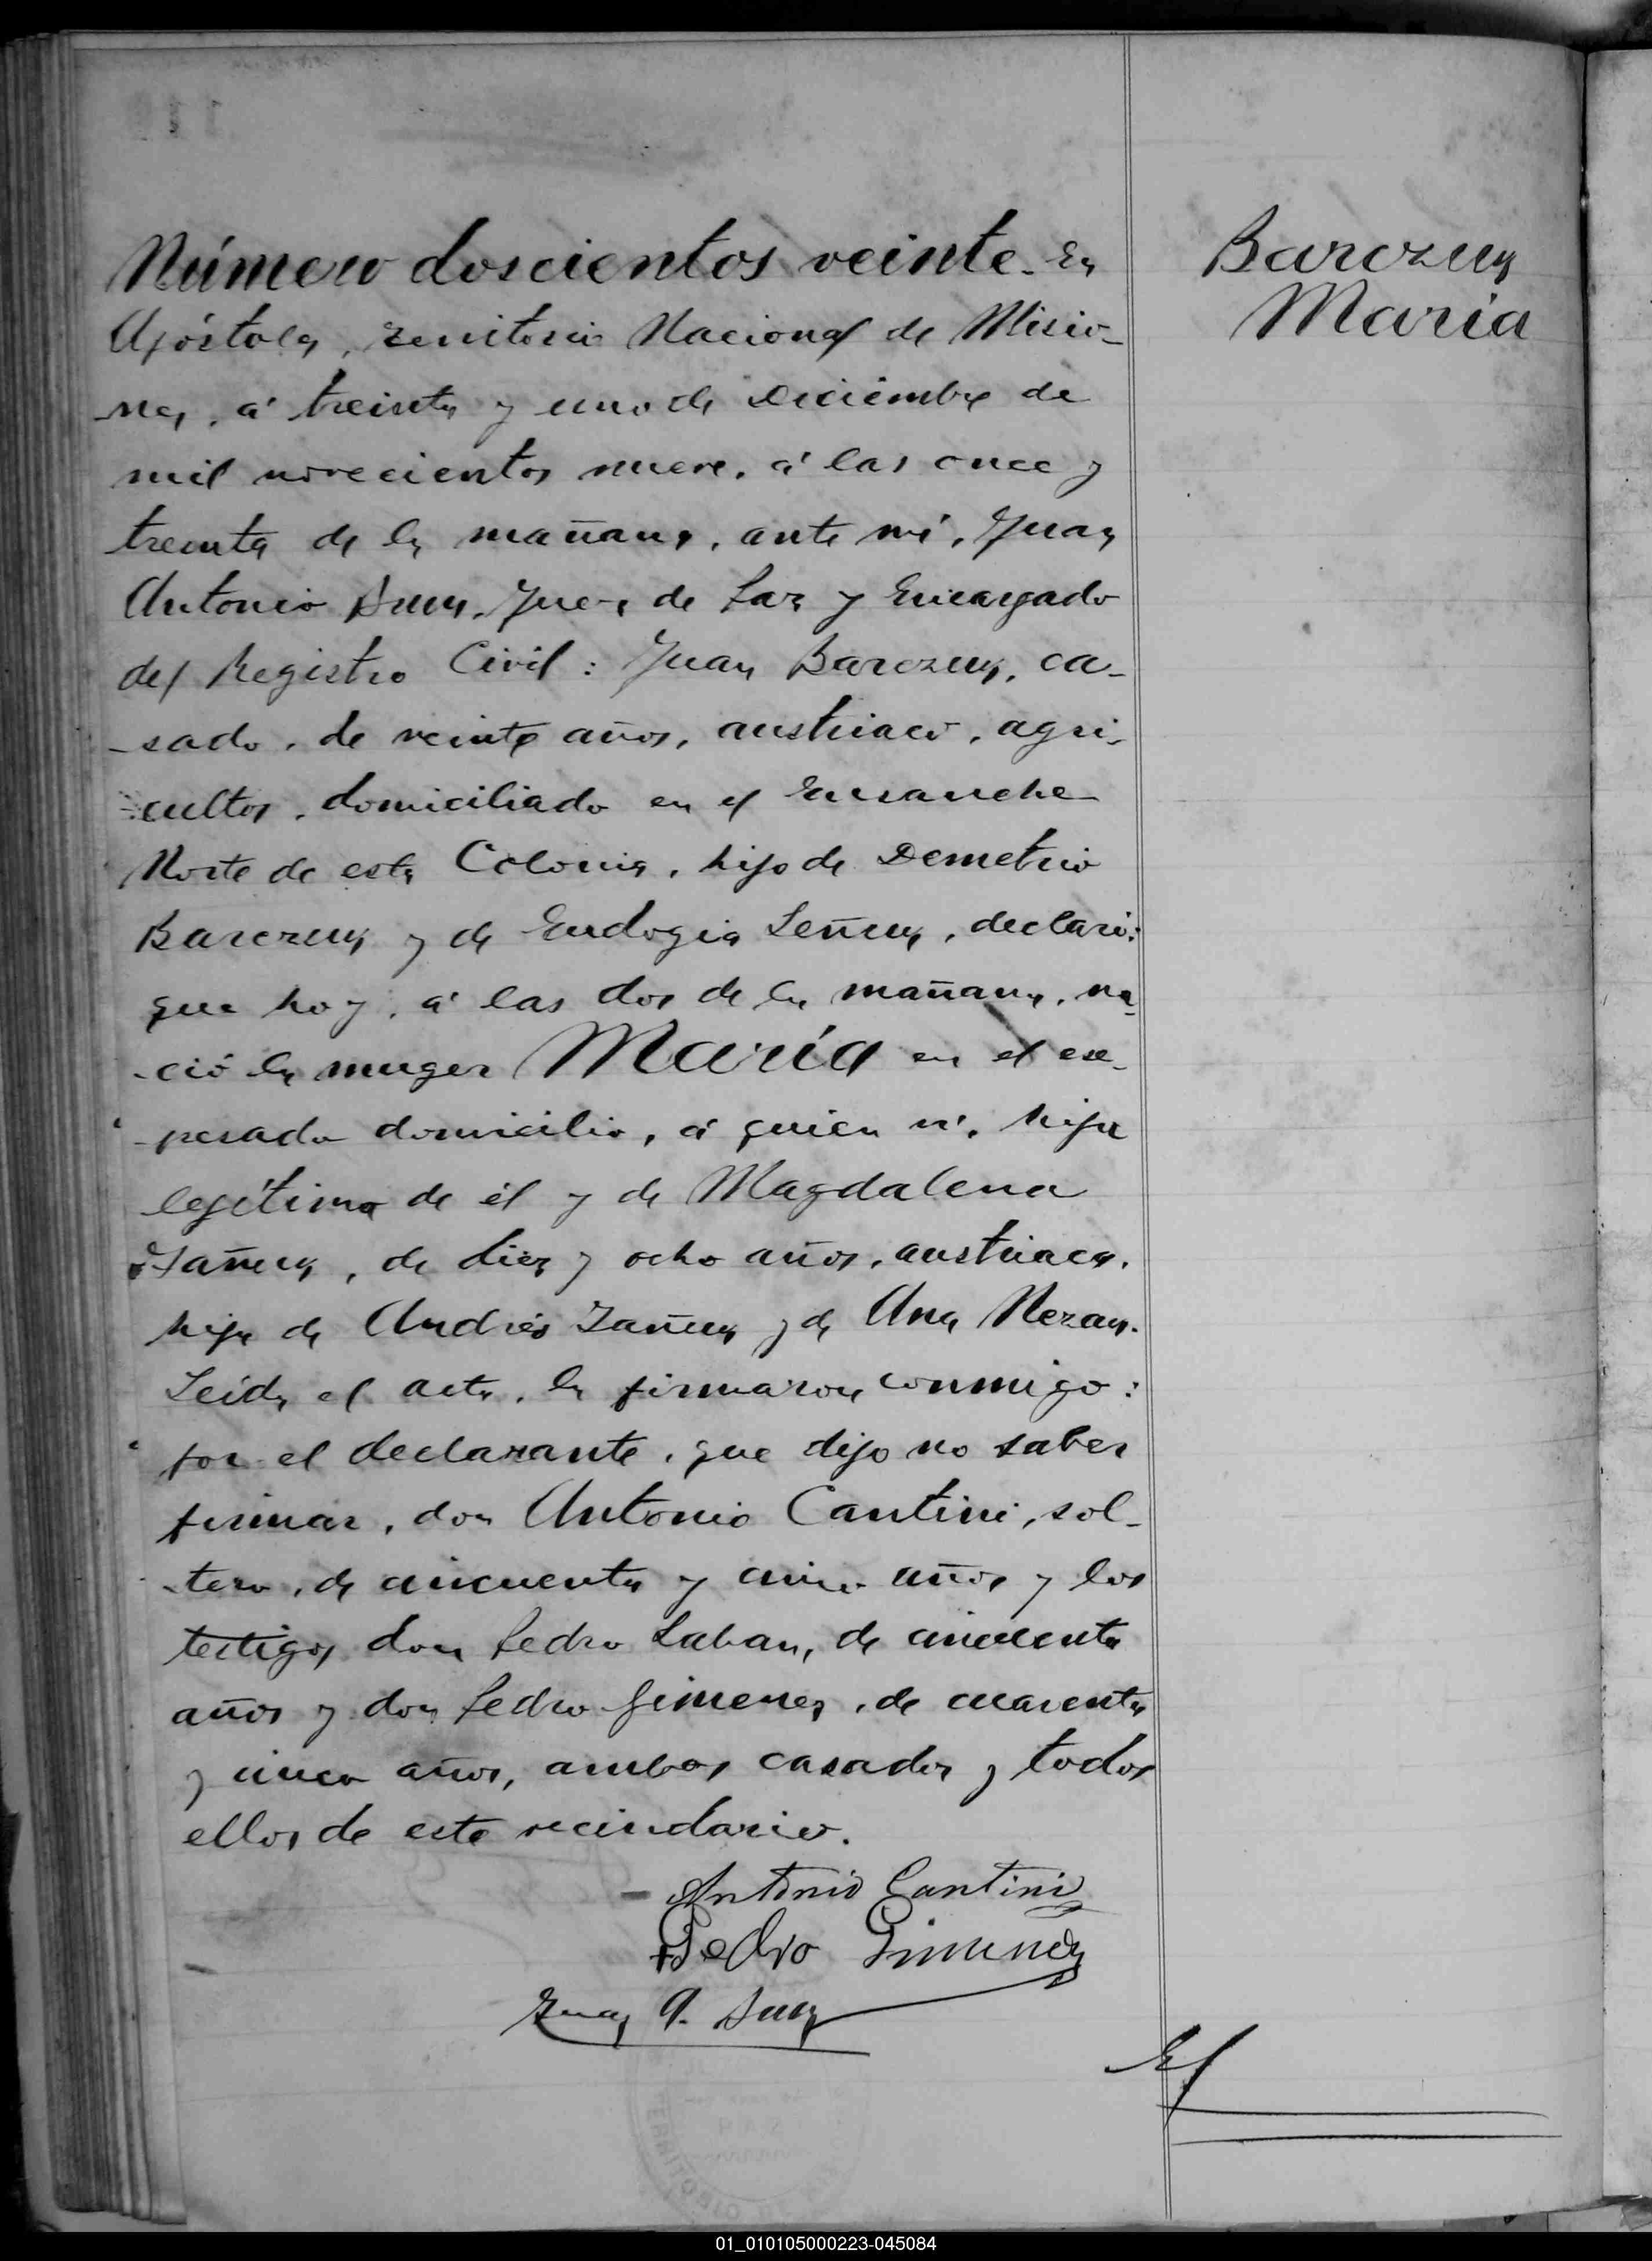 Número doscientos veinte. En
Apóstoles, Territorio Nacional de Misio-
nes, á treinta y uno de Diciembre de
mil novecientos nueve, á las once y
treinta de la mañana, ante mí, Juan
Antonio Juez de Paz y Encargado
del Registro Civil: Juan Barczuy, ca-
-sado, de veinte años, austriaco, agri-
cultor, domiciliado en el Ensanche
Norte de esta Colonia, hijo de Demetrio
Barczuy y de Eudogia declaró:
que hoy, á las dos de la mañana, na-
-ció la muger María en el exe-
-presado domicilio, á quien ví, hija
legítima de él y de Magdalena
de diez y ocho años, austriaca,
hija de Andrés y de Ana
Leida el acta, la firmaron conmigo:
por el declarante, que dijo no saber
firmar, don Antonio Cantini, sol-
-tero, de cincuenta y cinco años y los
testigos don Pedro Laban, de cincuenta
años y don Pedro Gimenez, de cuarenta
y cinco años, ambos casados y todos
ellos de este vecindario.
Antonio Cantini
Pedro Gimenez
Juan A.
Barczuy
María
TERRITORIO
01_010105000223-045084